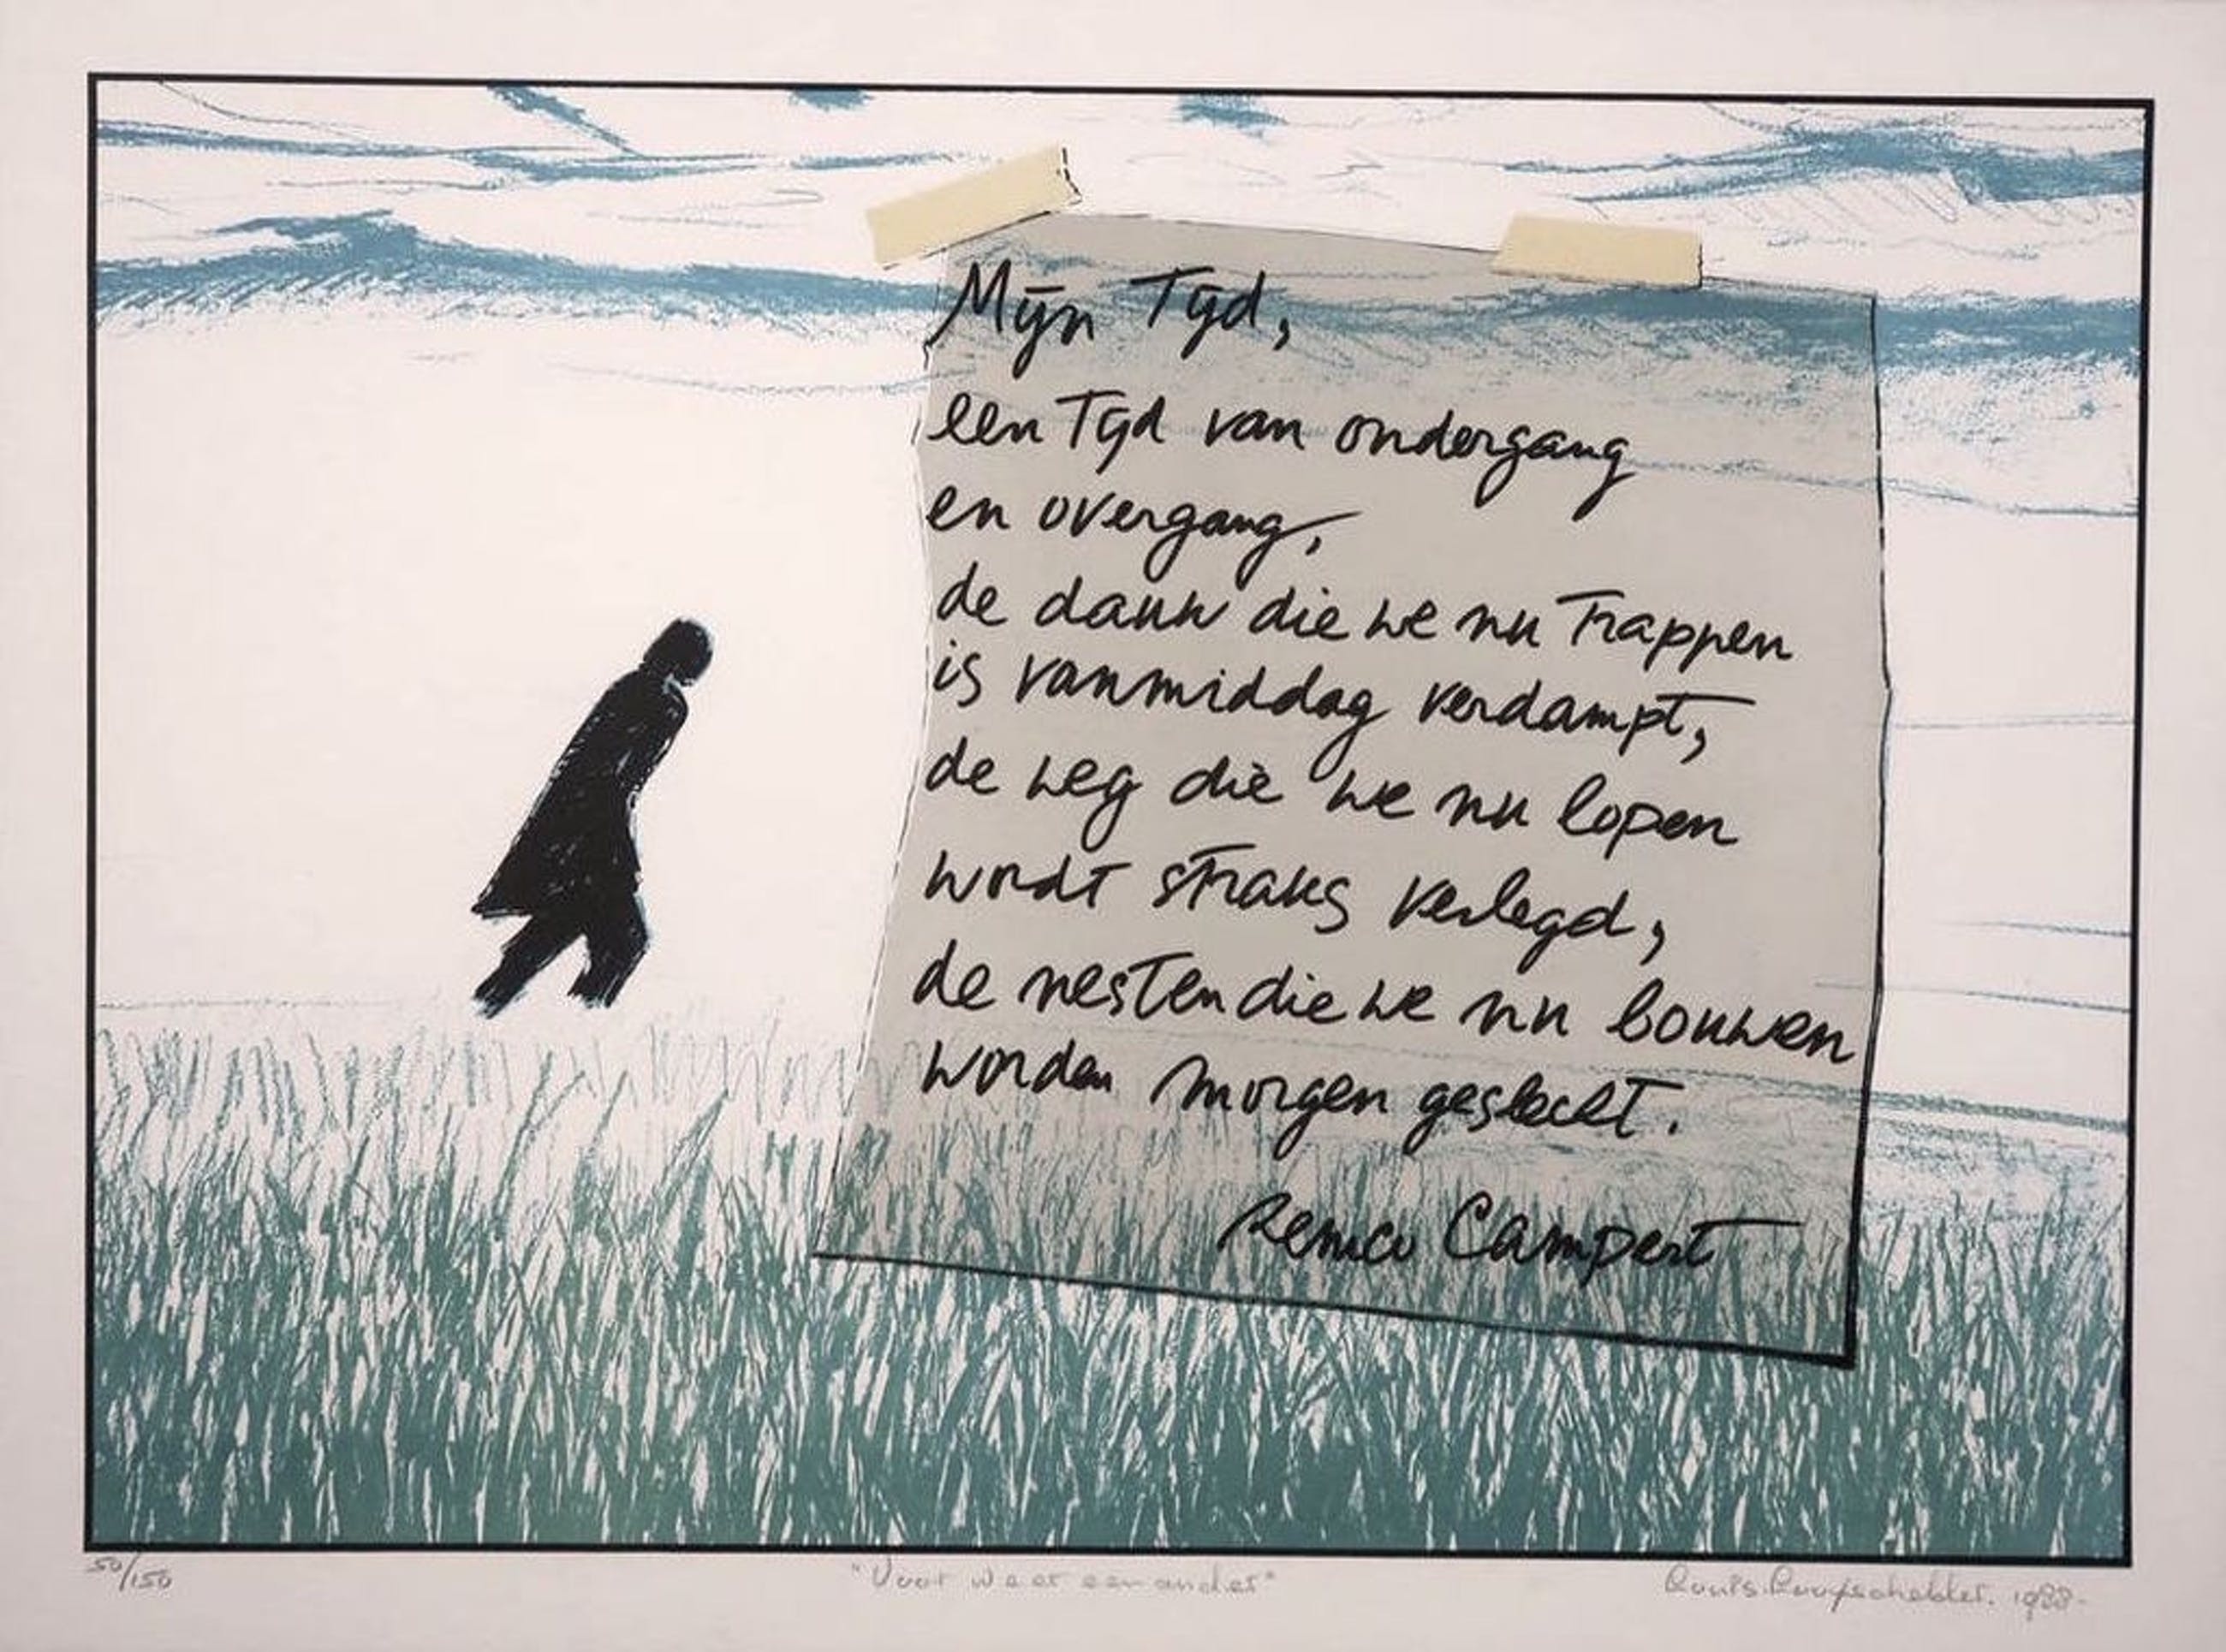 Mijn Tijd,
een Tijd van ondergang
en overgang,
de dauw die we nu Trappen
is vanmiddag verdampt,
de weg die we nu lopen
wordt straks verlegd,
de nesten die we nu bouwen
worden morgen geslecht.
Remco Campert
50/150
"Voor weer een ander"
Louis 1988.